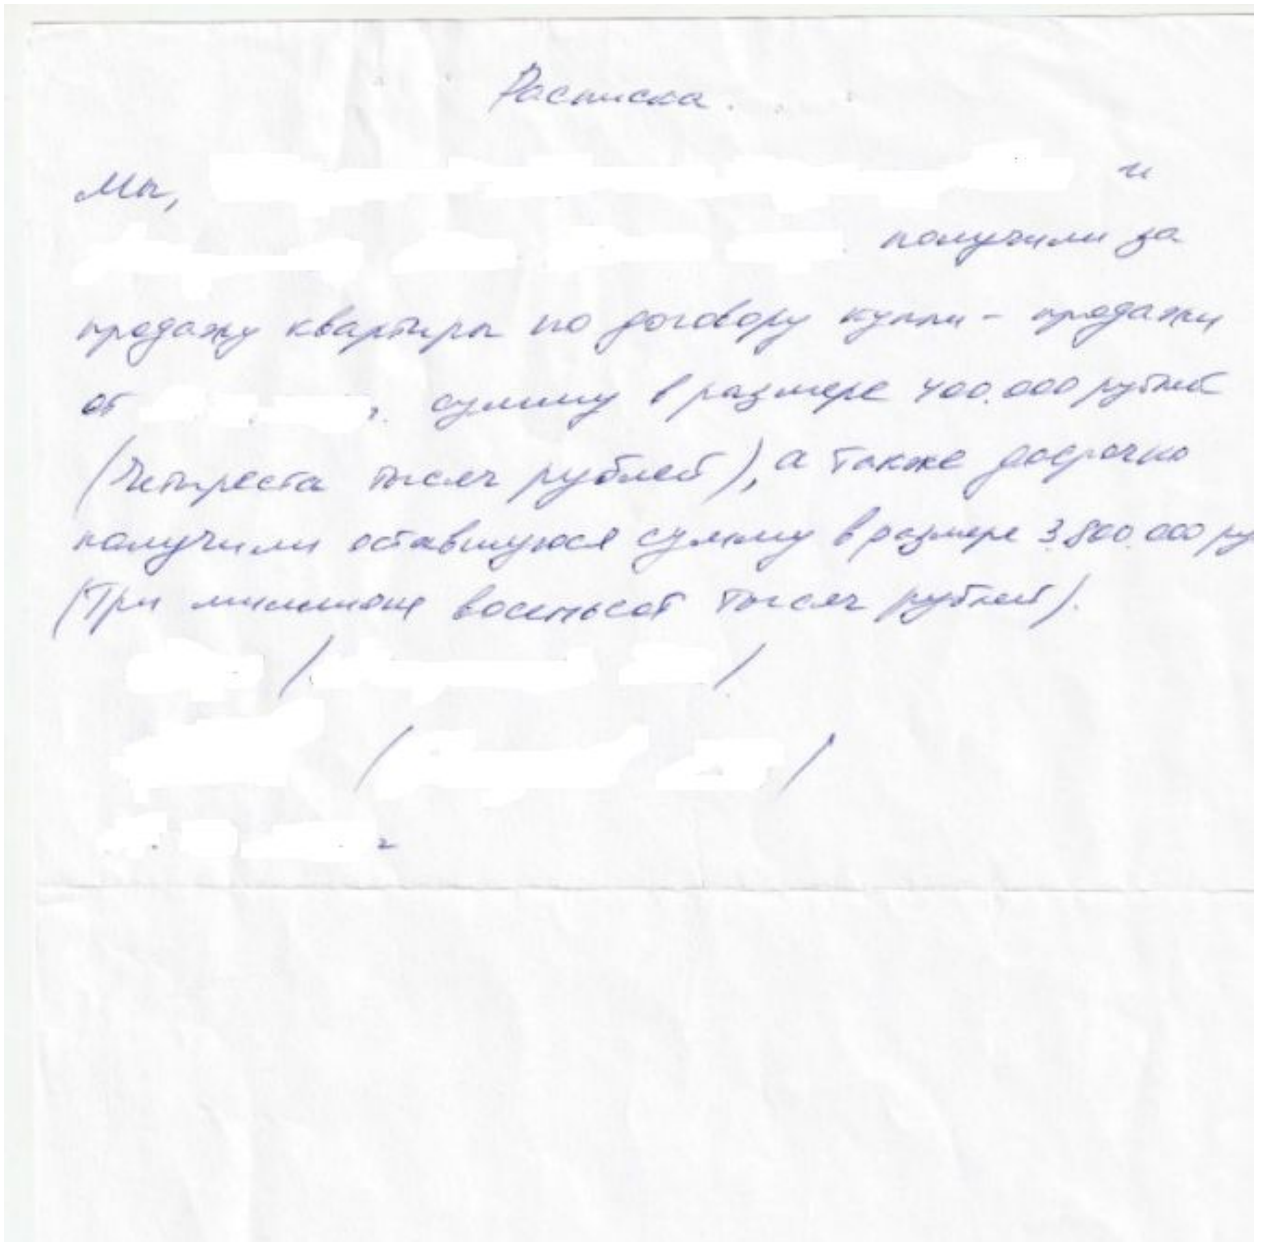 Расписка.
Мы, и
получили за
продажу квартиры по договору купли - продажи
от г. сумму в размере 400.000 рублей
(Четыреста тысяч рублей), а также досрочно
получили оставшуюся сумму в размере 3.800.000 ру
(Три миллиона восемьсот тысяч рублей).
/ /
/ /
г